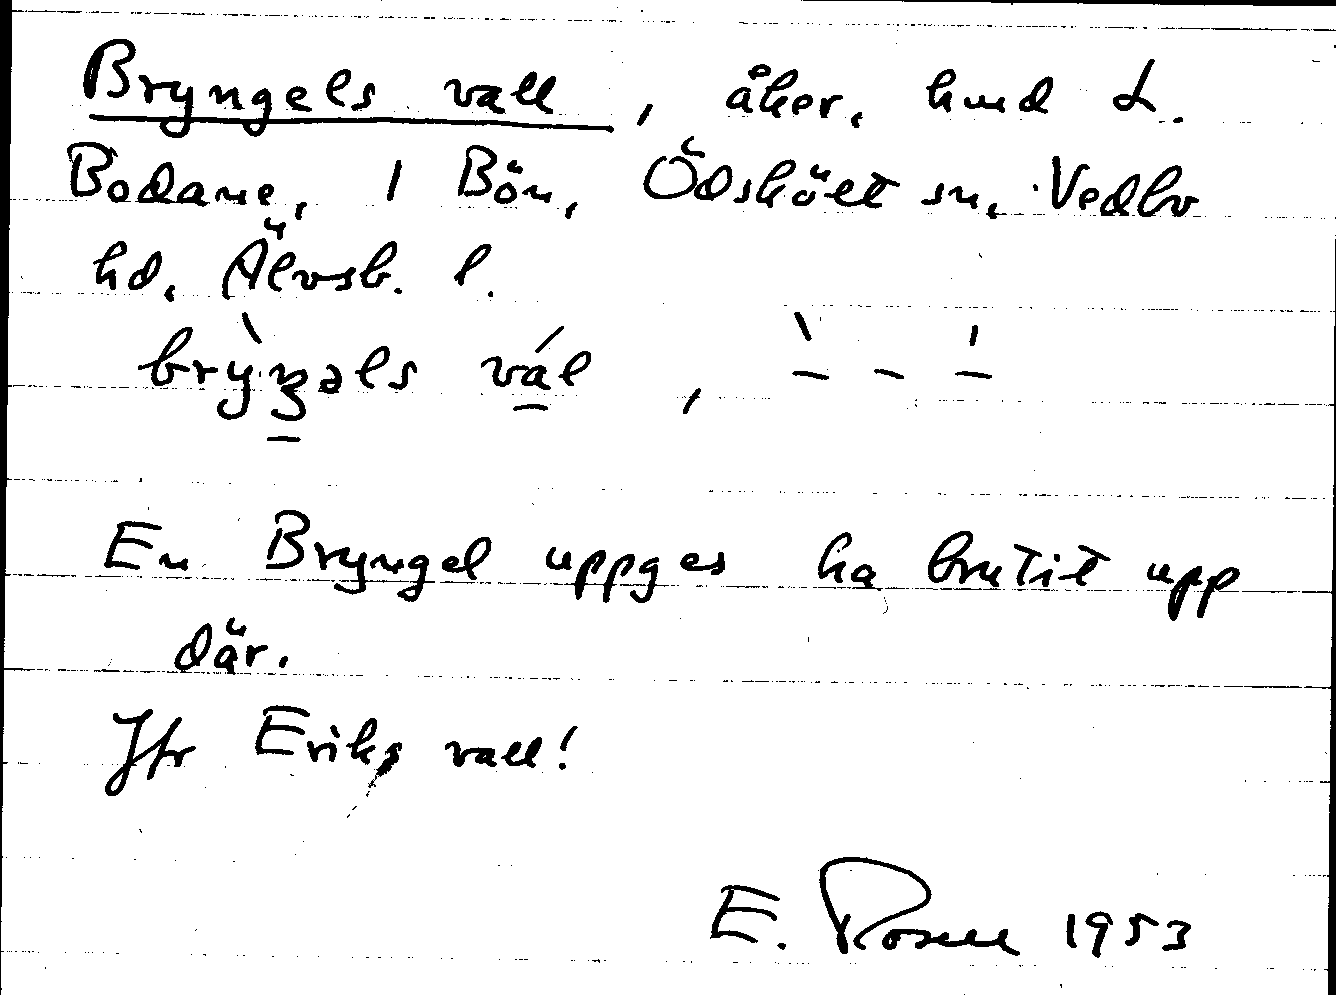 Bryngels vall, åker, hmd L.
Bodane, 1 Bön, Ödskölt sn, Vedbo
hd, Älvsb. l.
brỳŋəls vál, ` - '
En Bryngel uppges ha brutit upp
där.
Jfr Eriks vall!
E. Rosell 1953